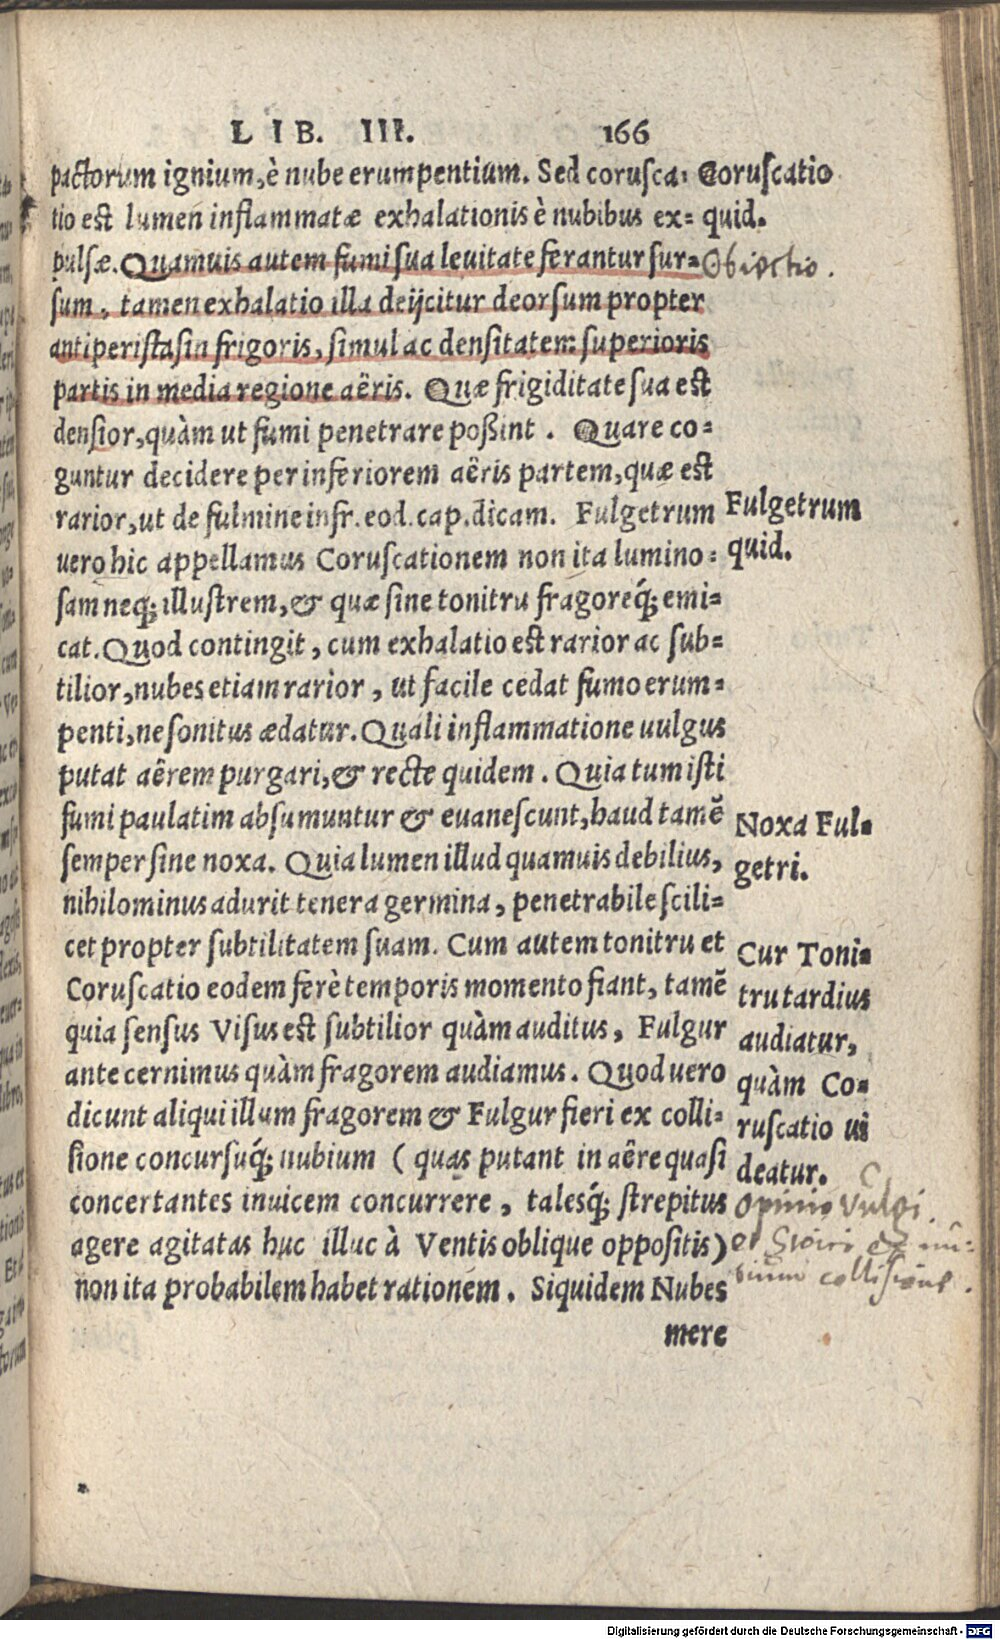 LIB. III. 166
pactorum ignium, è nube erumpentium. Sed corusca-
tio est lumen inflammatæ exhalationis è nubibus ex-
pulsæ. Quamuis autem fumi sua leuitate ferantur sur-
sum, tamen exhalatio illa deijcitur deorsum propter
antiperistasin frigoris, simul ac densitatem superioris
partis in media regione aëris. Quæ frigiditate sua est
densior, quàm ut fumi penetrare poßint. Quare co-
guntur decidere per inferiorem aëris partem, quæ est
rarior, ut de fulmine infr. eod. cap. dicam. Fulgetrum
uero hic appellamus Coruscationem non ita lumino-
sam neq; illustrem, & quæ sine tonitru fragoreq́; emi-
cat. Quod contingit, cum exhalatio est rarior ac sub-
tilior, nubes etiam rarior, ut facile cedat fumo erum-
penti, ne sonitus ædatur. Quali inflammatione uulgus
putat aërem purgari, & recte quidem. Quia tum isti
fumi paulatim absumuntur & euanescunt, haud tamẽ
semper sine noxa. Quia lumen illud quamuis debilius,
nihilominus adurit tenera germina, penetrabile scili-
cet propter subtilitatem suam. Cum autem tonitru et
Coruscatio eodem ferè temporis momento fiant, tamẽ
quia sensus Visus est subtilior quàm auditus, Fulgur
ante cernimus quàm fragorem audiamus. Quod uero
dicunt aliqui illum fragorem & Fulgur fieri ex colli-
sione concursuq́; nubium (quas putant in aëre quasi
concertantes inuicem concurrere, talesq́; strepitus
agere agitatas huc illuc à Ventis oblique oppositis)
non ita probabilem habet rationem. Siquidem Nubes
mere
Coruscatio
quid.
Obiectio.
Fulgetrum
quid.
Noxa Ful-
getri.
Cur Toni-
tru tardius
audiatur,
quàm Co-
ruscatio ui
deatur.
Opinio Vulgi
et
collisione.
Digitalisierung gefördert durch die Deutsche Forschungsgemeinschaft - DFG